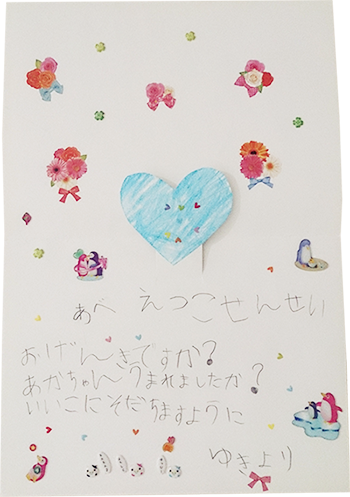 あべ えつこせんせい
おげんきですか?
あかちゃんうまれましたか?
いいこにそだちますように
ゆきより